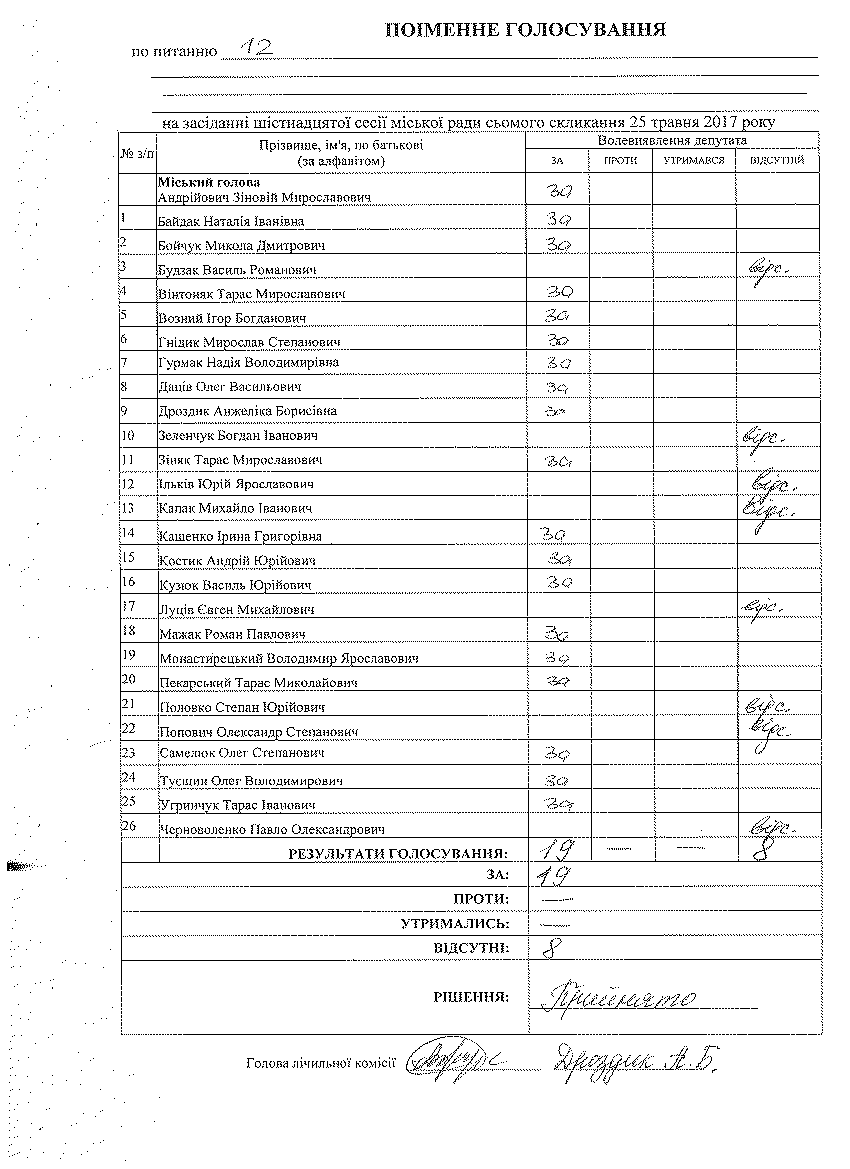 ПОІМЕННЕ ГОЛОСУВАННЯ
по питанню 12
на засіданні шістнадцятої сесії міської ради сьомого скликання 25 травня 2017 року
№ з/п Прізвище, ім'я, по батькові (за алфавітом) Волевиявлення депутата
ЗА ПРОТИ УТРИМАВСЯ ВІДСУТНІЙ
Міський голова
Андрійович Зіновій Мирославович за
1 Байдак Наталія Іванівна за
2 Бойчук Микола Дмитрович за
3 Будзак Василь Романович відс.
4 Вінтоняк Тарас Мирославович за
5 Возний Ігор Богданович за
6 Гнідик Мирослав Степанович за
7 Гурмак Надія Володимирівна за
8 Даців Олег Васильович за
9 Дроздик Анжеліка Борисівна за
10 Зеленчук Богдан Іванович відс.
11 Зіняк Тарас Мирославович за
12 Ільків Юрій Ярославович відс.
13 Капак Михайло Іванович відс.
14 Кашенко Ірина Григорівна за
15 Костик Андрій Юрійович за
16 Кузюк Василь Юрійович за
17 Луців Євген Михайлович відс.
18 Мажак Роман Павлович за
19 Монастирецький Володимир Ярославович за
20 Пекарський Тарас Миколайович за
21 Половко Степан Юрійович відс.
22 Попович Олександр Степанович відс.
23 Самелюк Олег Степанович за
24 Олег Володимирович за
25 Угринчук Тарас Іванович за
26 Черноволенко Павло Олександрович відс.
РЕЗУЛЬТАТИ ГОЛОСУВАННЯ: 19 — — 8
ЗА: 19
ПРОТИ: —
УТРИМАЛИСЬ: —
ВІДСУТНІ: 8
РІШЕННЯ: Прийнято
Голова лічильної комісії Дроздик А.Б.